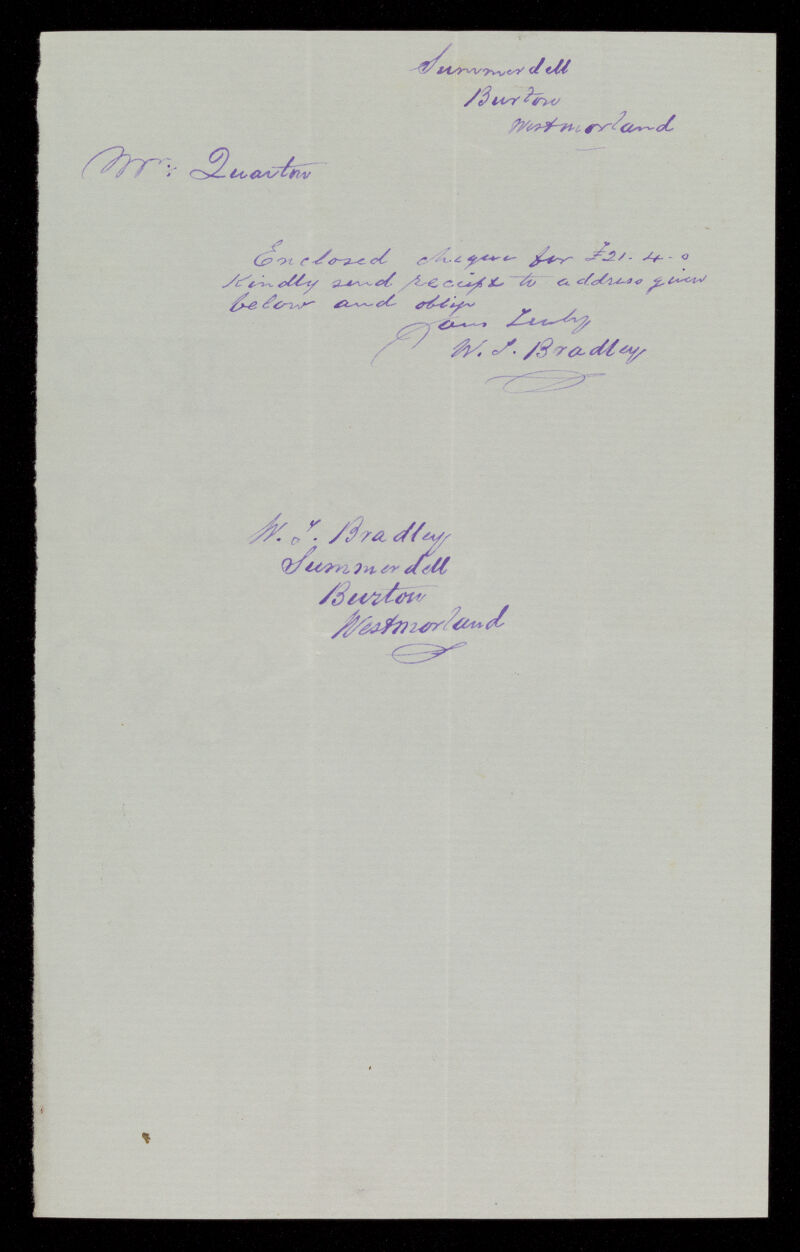 Summerdell
Burton
Westmorland
Mr: Quarton
Enclosed cheque for £21-4-0
Kindly send reciept to address given
below and oblige
Yours Truly
W. T. Bradley
W. T. Bradley
Summerdell
Burton
Westmorland